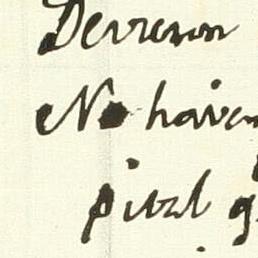 Devreron
No haven
pital g